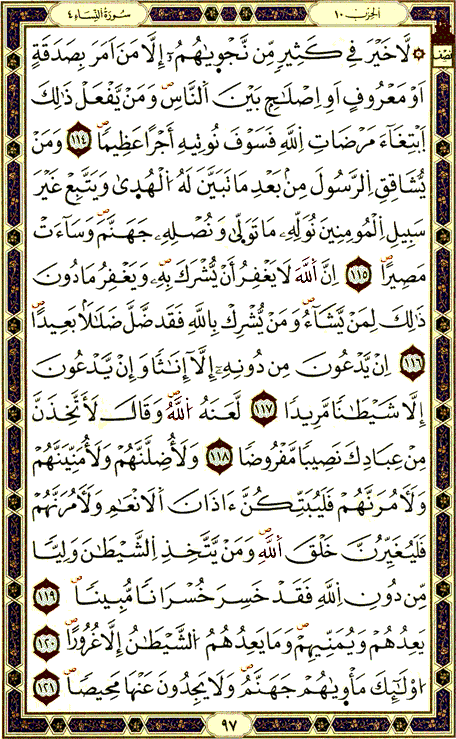 سُورَةُ النِّسَاءِ ٤
الحِزْبُ ١٠
نِصْف
لَّا خَيْرَ فِي كَثِيرٍ مِّن نَّجْوٜىٰهُمُۥٓ إِلَّا مَنَ اَمَرَ بِصَدَقَةٍ
اَوْ مَعْرُوفٍ اَوِ اِصْلَٰحٍ بَيْنَ اَلنَّاسِۖ وَمَنْ يَّفْعَلْ ذَٰلِكَ
اَبْتِغَآءَ مَرْضَاتِ اِللَّهِ فَسَوْفَ نُوتِيهِ أَجْراً عَظِيماًۖ ١١٤ وَمَنْ
يُّشَاقِقِ اِلرَّسُولَ مِنۢ بَعْدِ مَا تَبَيَّنَ لَهُ اُلْهُدٜىٰ وَيَتَّبِعْ غَيْرَ
سَبِيلِ اِلْمُومِنِينَ نُوَلِّهِۦ مَا تَوَلّٜىٰ وَنُصْلِهِۦ جَهَنَّمَۖ وَسَآءَتْ
مَصِيراًۖ ١١٥ اِنَّ اَللَّهَ لَا يَغْفِرُ أَنْ يُّشْرَكَ بِهِۦۖ وَيَغْفِرُ مَا دُونَ
ذَٰلِكَ لِمَنْ يَّشَآءُۖ وَمَنْ يُّشْرِكْ بِاللَّهِ فَقَد ضَّلَّ ضَلَٰلَاۢ بَعِيداًۖ
١١٦ اِنْ يَّدْعُونَ مِن دُونِهِۦٓ إِلَّآ إِنَٰثاً وَإِنْ يَّدْعُونَ
إِلَّا شَيْطَٰناً مَّرِيداً ١١٧ لَّعَنَهُ اُللَّهُۖ وَقَالَ لَأَتَّخِذَنَّ
مِنْ عِبَادِكَ نَصِيباً مَّفْرُوضاًۖ ١١٨ وَلَأُضِلَّنَّهُمْ وَلَأُمَنِّيَنَّهُمْ
وَلَأٓمُرَنَّهُمْ فَلَيُبَتِّكُنَّ ءَاذَانَ اَلَانْعَٰمِ وَلَأٓمُرَنَّهُمْ
فَلَيُغَيِّرُنَّ خَلْقَ اَللَّهِۖ وَمَنْ يَّتَّخِذِ اِلشَّيْطَٰنَ وَلِيّاً
مِّن دُونِ اِللَّهِ فَقَدْ خَسِرَ خُسْرَاناً مُّبِيناًۖ ١١٩
يَعِدُهُمْ وَيُمَنِّيهِمْۖ وَمَا يَعِدُهُمُ اُلشَّيْطَٰنُ إِلَّا غُرُوراًۖ ١٢٠
اُوْلَٰٓئِكَ مَأْوٜىٰهُمْ جَهَنَّمُۖ وَلَا يَجِدُونَ عَنْهَا مَحِيصاًۖ ١٢١
٩٧